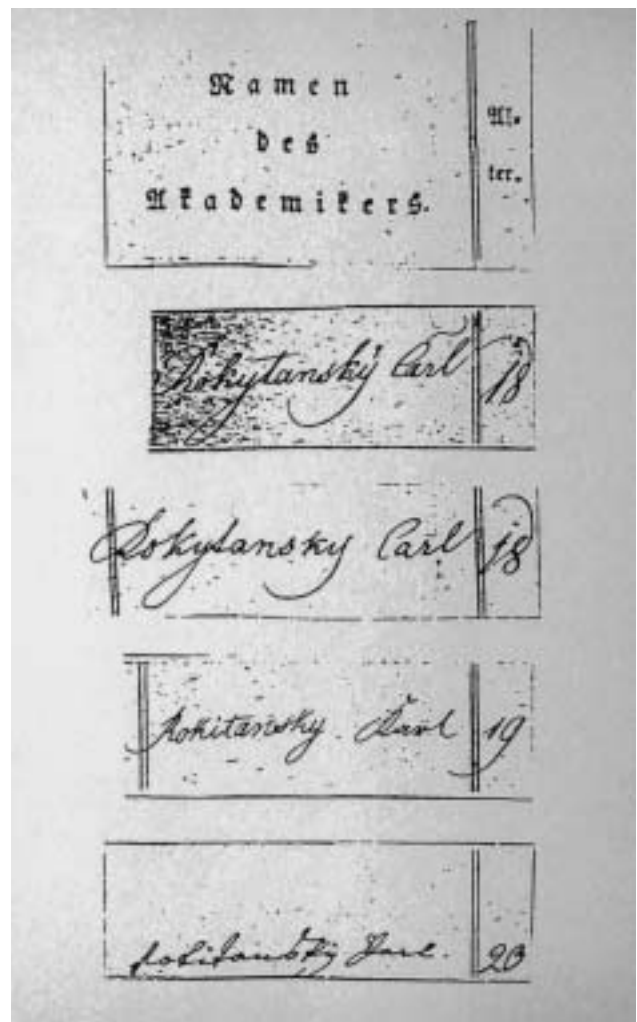 Namen
des
Akademikers.
Al-
ter.
Rokytanský Carl 18
Rokytansky Carl 18
Rokitansky Karl 19
Rokitanský Karl. 20